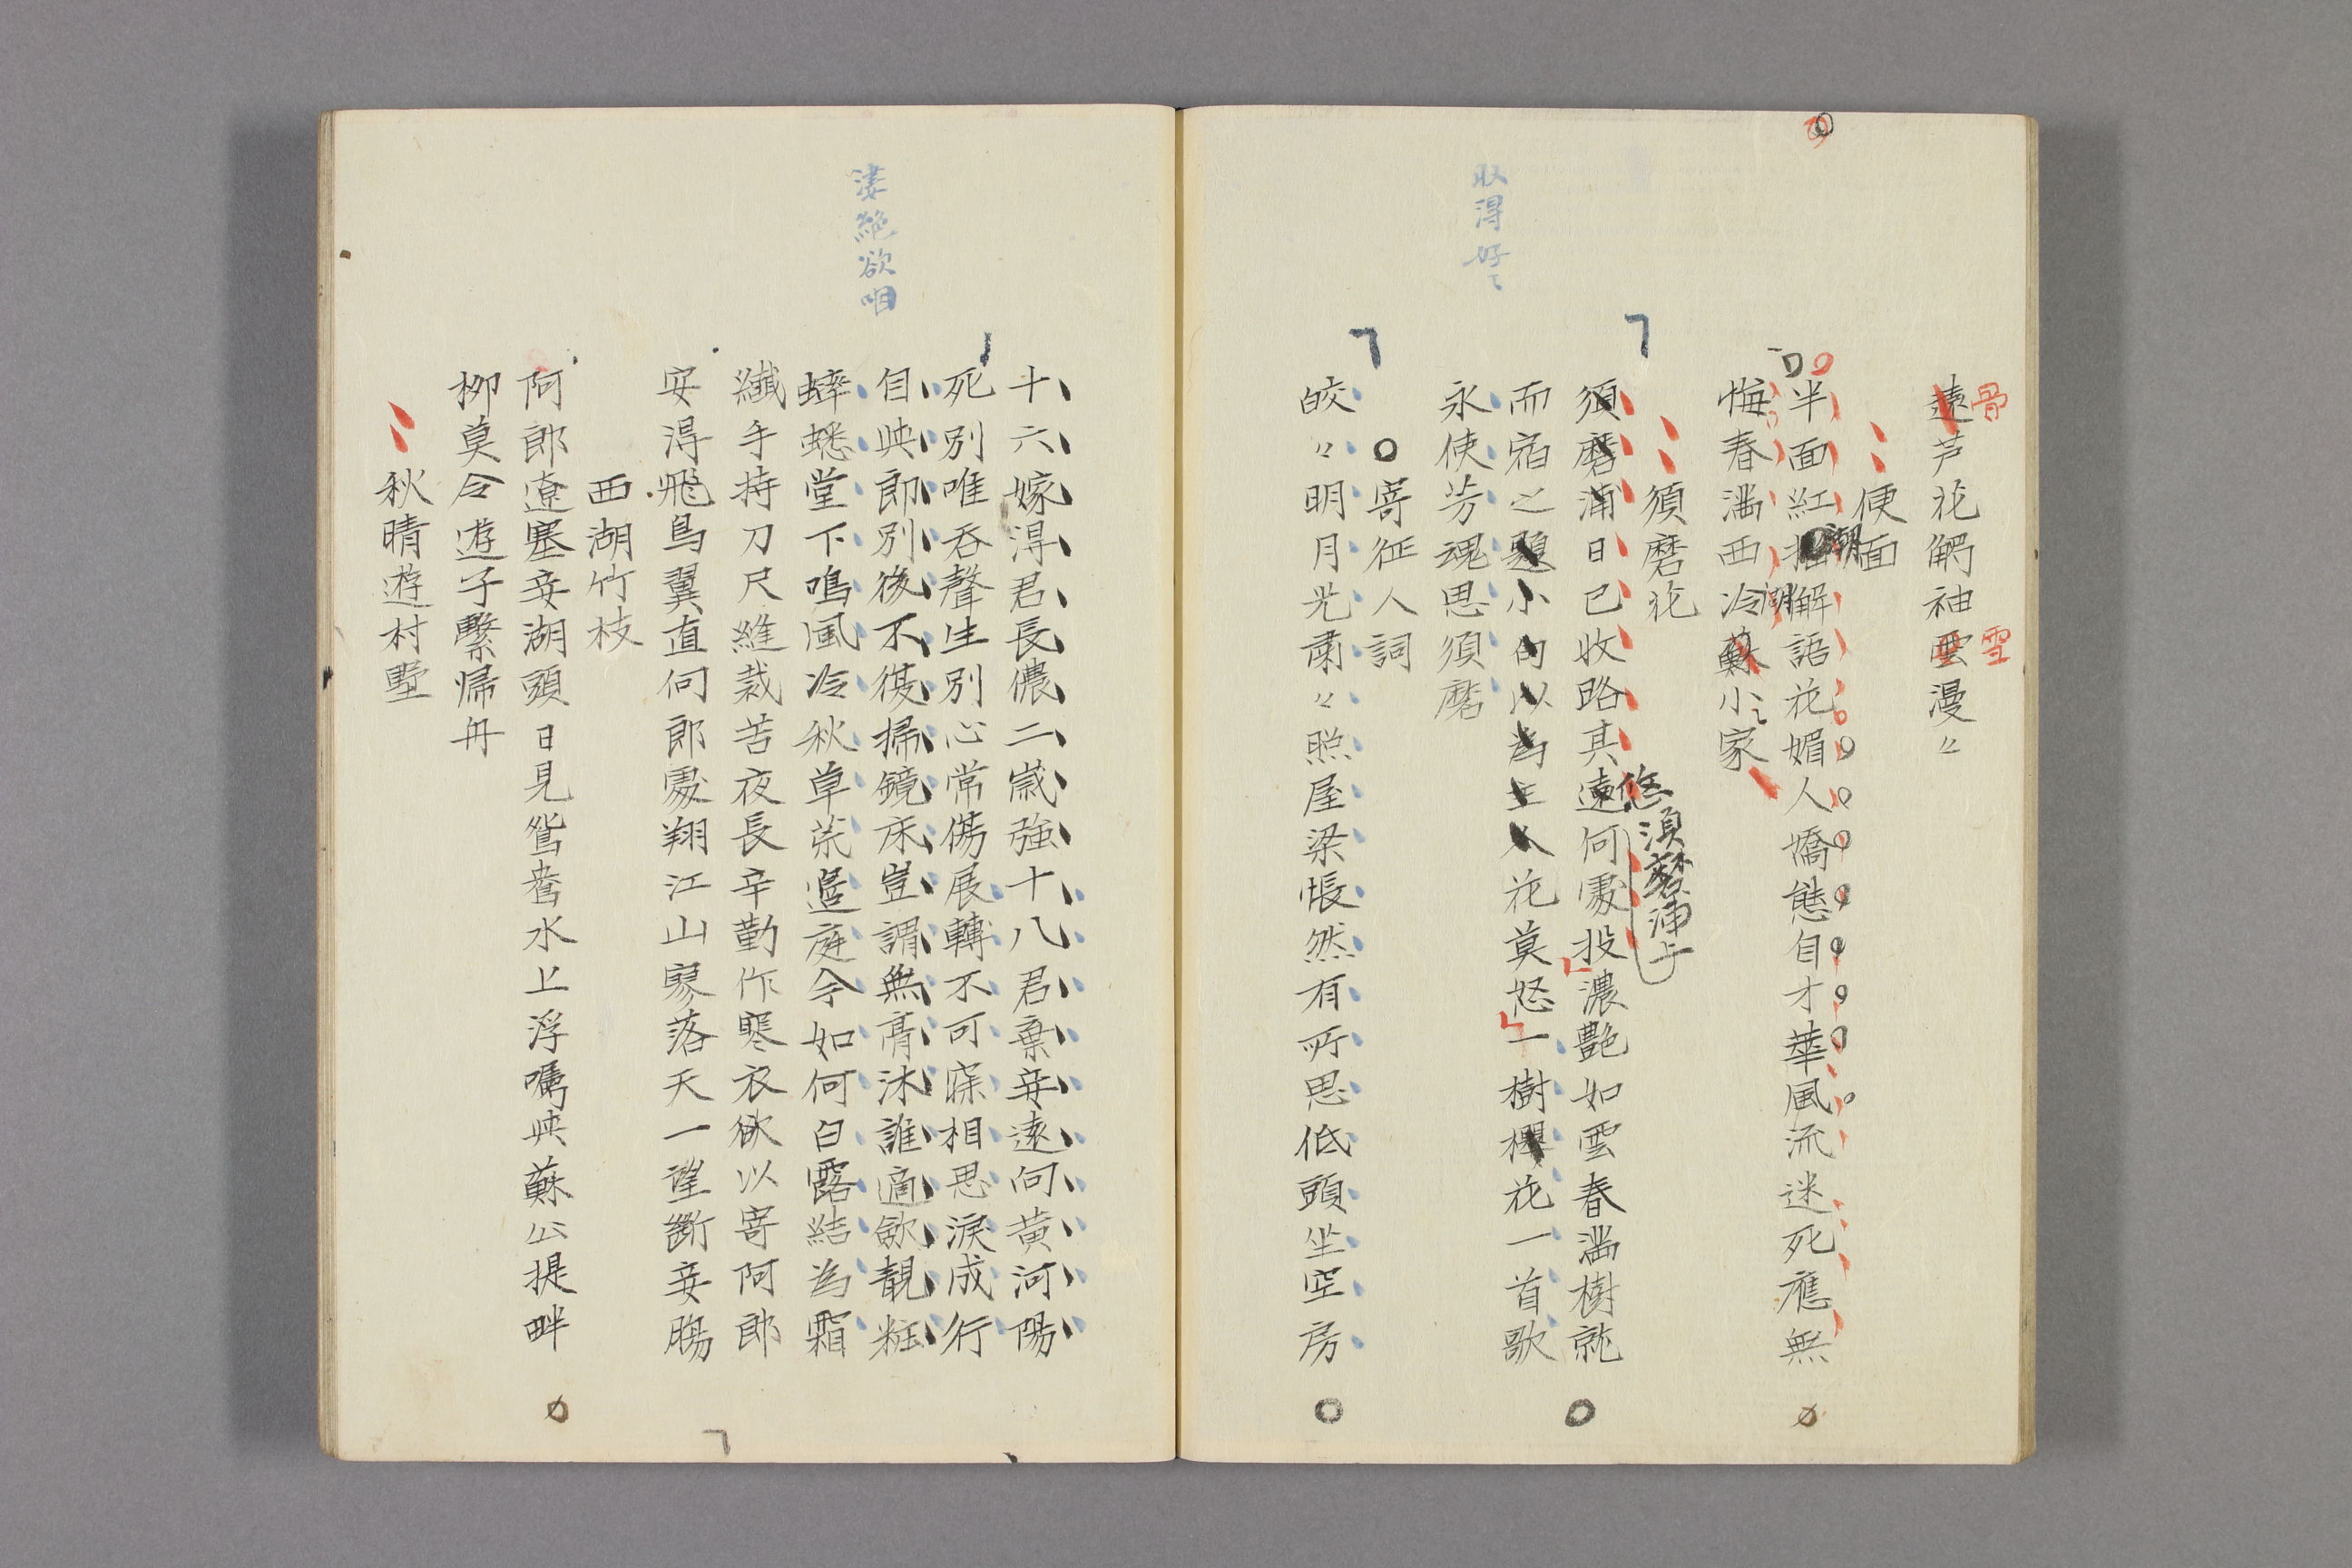 遠芦花觸袖雲漫々
骨
雪
便面
半面紅
解語花媚人嬌態自才華風流迷死應無
湖
悔春滿西冷蘇小家
湖
須磨花
須磨浦日已收路其遠何處投濃艷如雲春滿樹就
悠
須磨浦上
而宿之題小句以為主人花莫怒一樹櫻花一首歌
永使芳魂思須磨
取得好々
寄征人詞
皎々明月光肅々照屋梁悵然有所思低頭坐空房
十六嫁得君長儂二歲強十八君棄妾遠向黄河陽
死別唯呑聲生別心常傷展轉不可寐相思淚成行
自與郎別後不復掃鏡床豈謂無膏沐誰適歛靚粧
淒絶欲咽
蟀蟋堂下鳴風冷秋草荒邉庭今如何白露結為霜
纖手持刀尺縫裁苦夜長辛勤作寒衣欲以寄阿郎
安得飛鳥翼直向郎處翔江山寥落天一望斷妾腸
西湖竹枝
阿郎遼塞妾湖頭日見鴛鴦水上浮囑與蘇公提畔
柳莫令遊子繫帰舟
秋晴遊村墅